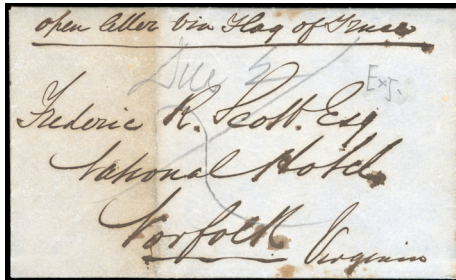 open letter via Flag of Truce
Due 2
Exj.
Frederic R. Scott. Esq
National Hotel
Norfolk Virginia